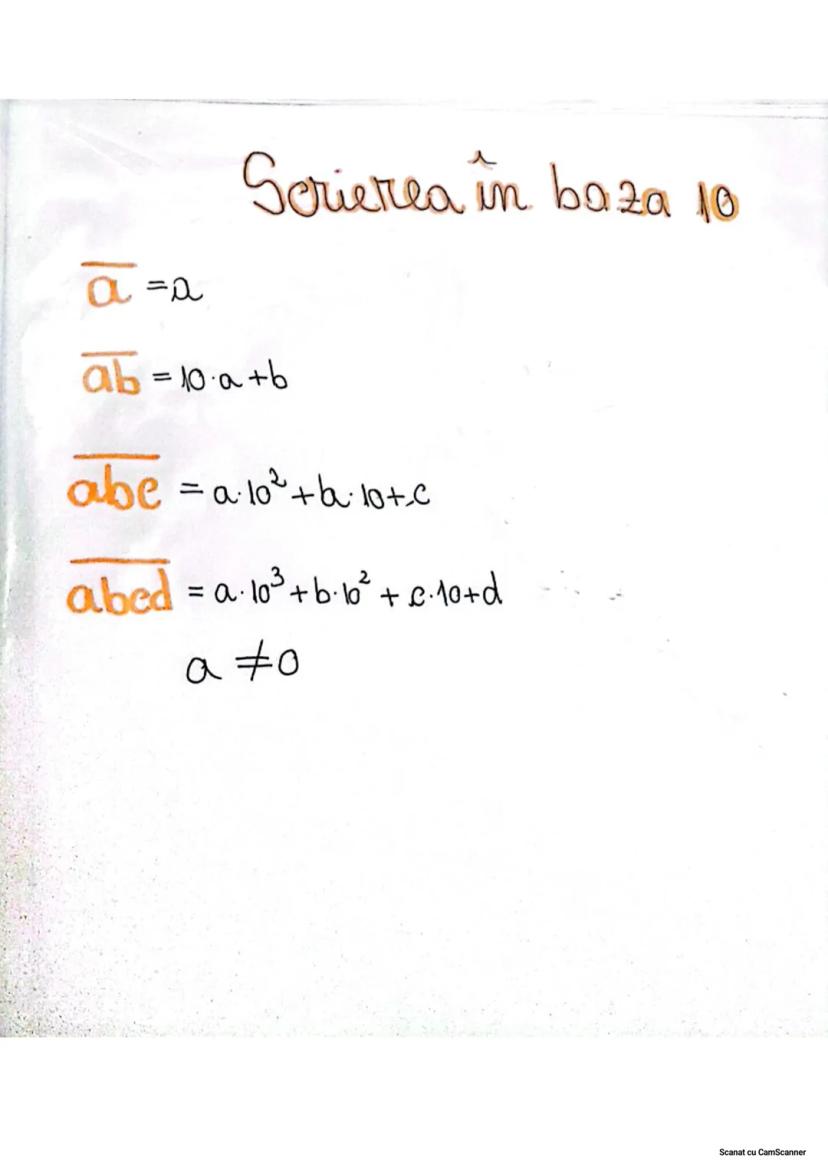 Scrierea în baza 10
a̅ = a
a̅b̅ = 10·a+b
a̅b̅c̅ = a·10²+b·10+c
a̅b̅c̅d̅ = a·10³+b·10²+c·10+d
a ≠ 0
Scanat cu CamScanner